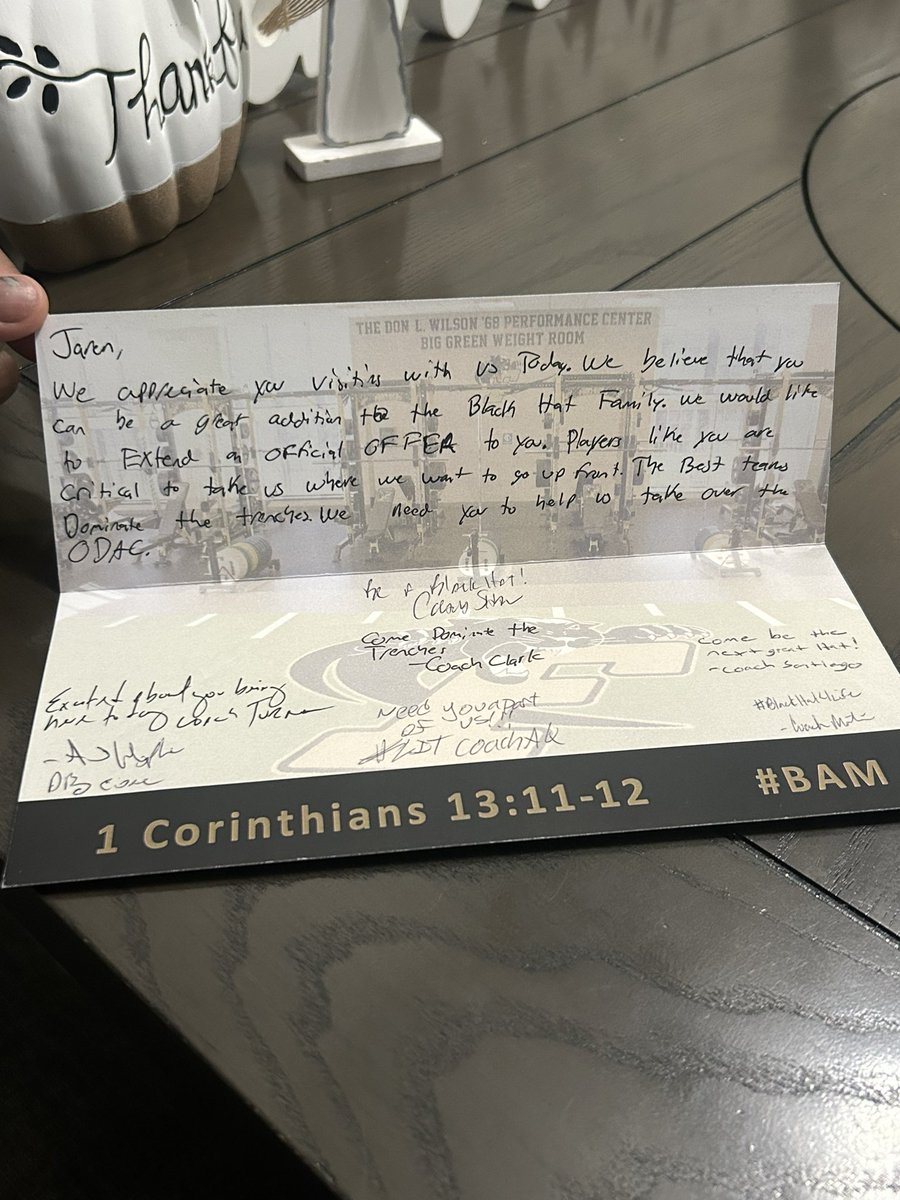 Thankful
THE DON L. WILSON '68 PERFORMANCE CENTER
BIG GREEN WEIGHT ROOM
Jaren,
We appreciate you visiting with us Today. We believe that you
can be a great addition to the Black Hat Family. We would like
to Extend an OFFicial OFFER to you. Players like you are
critical to take us where we want to go up front. The Best teams
Dominate the trenches. We need you to help us take over the
ODAC.
Be a Black Hat!
Come Dominate the
Trenches
-Coach Clark
Come be the
next great Hat!
-Coach Santiago
Excited about you being
here today Coach Turner
Need you apart
of us!!!
#LIT Coach AQ
#BlackHat4Life
- Coach
1 Corinthians 13:11-12
#BAM